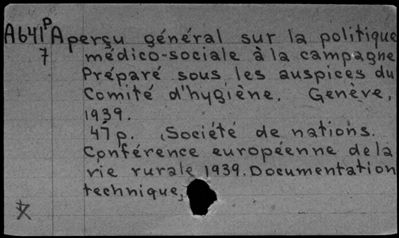 A641P Aperçu général sur la politique
7 médico-sociale à la campagne
Préparé sous les auspices du
Comité d'hygiène. Genève,
1939.
47 p. (Société de nations.
Conférence européenne de la
vie rurale 1939. Documentation
technique,